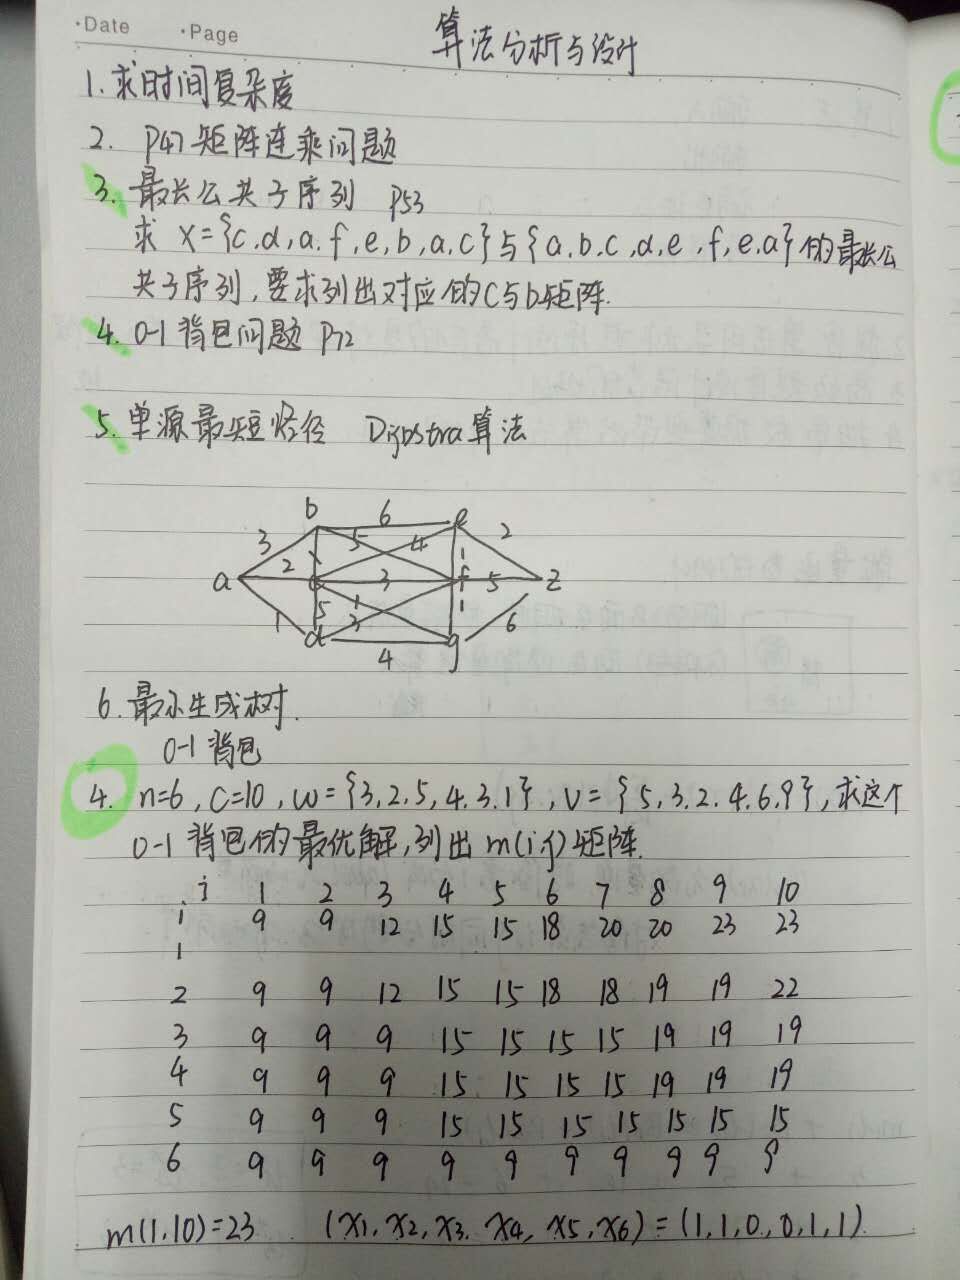 ·Date ·Page
算法分析与设计
1. 求时间复杂度
2. P47 矩阵连乘问题
3. 最长公共子序列 P53
求 X={c,d,a.f,e,b,a,c}与{a.b.c,d,e,f,e.a}的最长公
共子序列,要求列出对应的C与b矩阵.
4. 0-1背包问题 P72
5. 单源最短路径 Dijostra算法
b 6 e
3 5 4 2
a 2 1 c 3 1 f 5 z
1 5 1 3 1 6
d 4 g
6. 最小生成树.
0-1背包
4. n=6, C=10, w={3.2.5,4.3.1}, v={5,3.2.4.6.9},求这个
0-1背包的最优解,列出m(i,j)矩阵.
j 1 2 3 4 5 6 7 8 9 10
i 9 9 12 15 15 18 20 20 23 23
1
2 9 9 12 15 15 18 18 19 19 22
3 9 9 9 15 15 15 15 19 19 19
4 9 9 9 15 15 15 15 19 19 19
5 9 9 9 15 15 15 15 15 15 15
6 9 9 9 9 9 9 9 9 9 9
m(1,10)=23 (x1,x2,x3.x4,x5,x6)=(1,1,0,0,1,1).